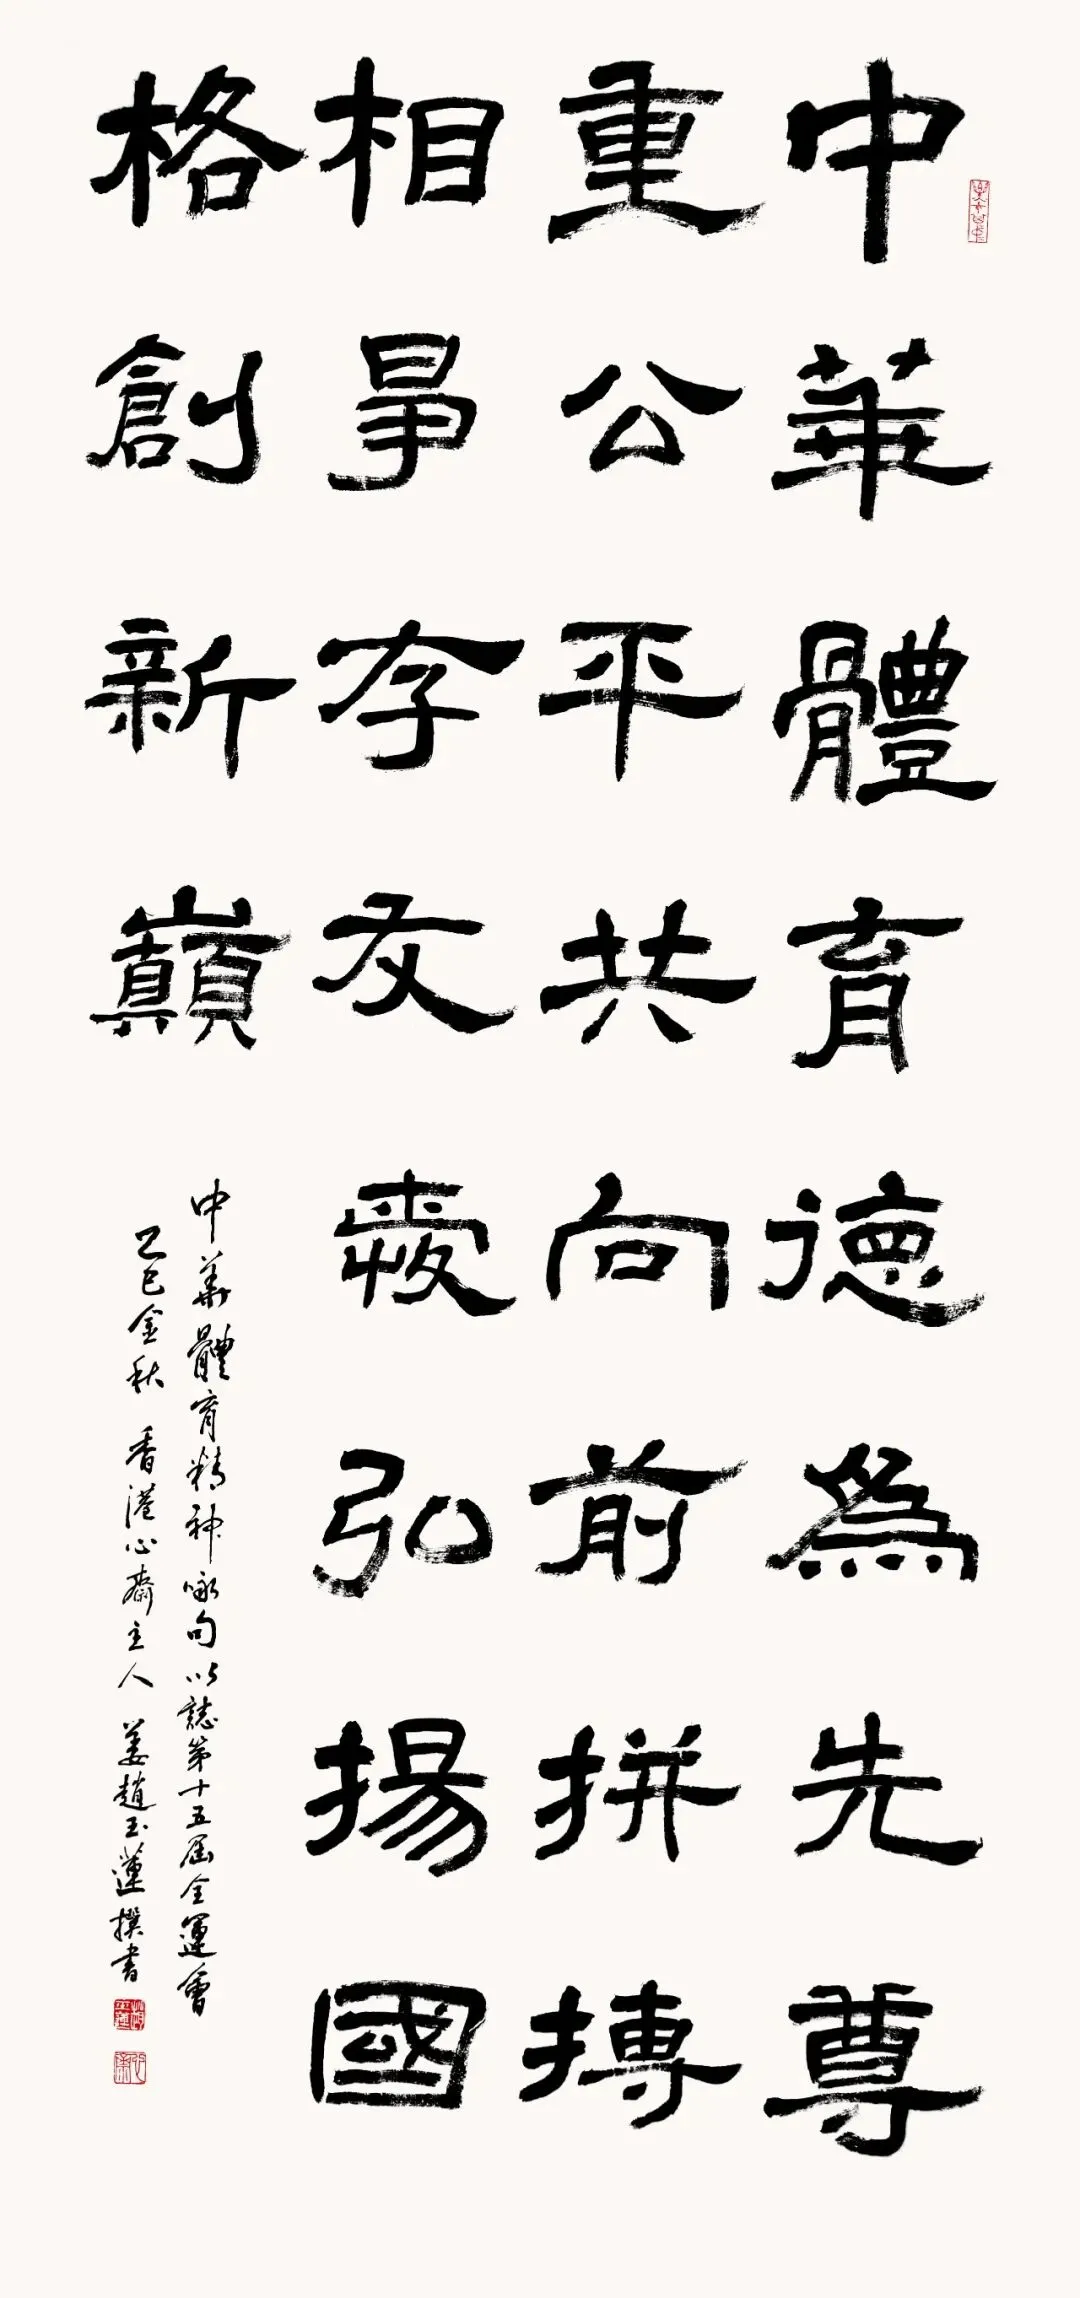 中華體育德爲先尊
重公平共向前拼搏
相爭存友愛弘揚國
格創新巔
中華體育精神咏句以誌第十五屆全運會
乙巳金秋 香港心齋主人 姜趙玉蓮撰書